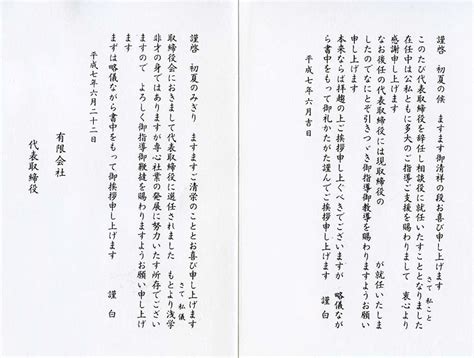 謹啓　初夏の候　ますます御清祥の段お喜び申し上げます
さて　私こと
このたび代表取締役を辞任し相談役に就任いたすこととなりました
在任中は公私ともに多大のご指導ご支援を賜わりまして　衷心より
感謝申し上げます
なお後任の代表取締役には現取締役の　　　　が就任いたしま
したのでなにとぞ引きつゞき御指導御教導を賜わりますようお願い
申し上げます
本来ならば拝趨の上ご挨拶申し上ぐべきでございますが　略儀なが
ら書中をもって御礼かたがた謹んでご挨拶申し上げます
謹　白
平成七年六月吉日
謹啓　初夏のみぎり　ますますご清栄のこととお喜び申し上げます
さて　私儀
取締役会におきまして代表取締役に選任されました　もとより浅学
非才の身ではありますが専心社業の発展に努力いたす所存でござい
ますので　よろしく御指導御鞭撻を賜わりますようお願い申し上げ
ます
まずは略儀ながら書中をもって御挨拶申し上げます
謹　白
平成七年六月二十二日
有限会社
代表取締役